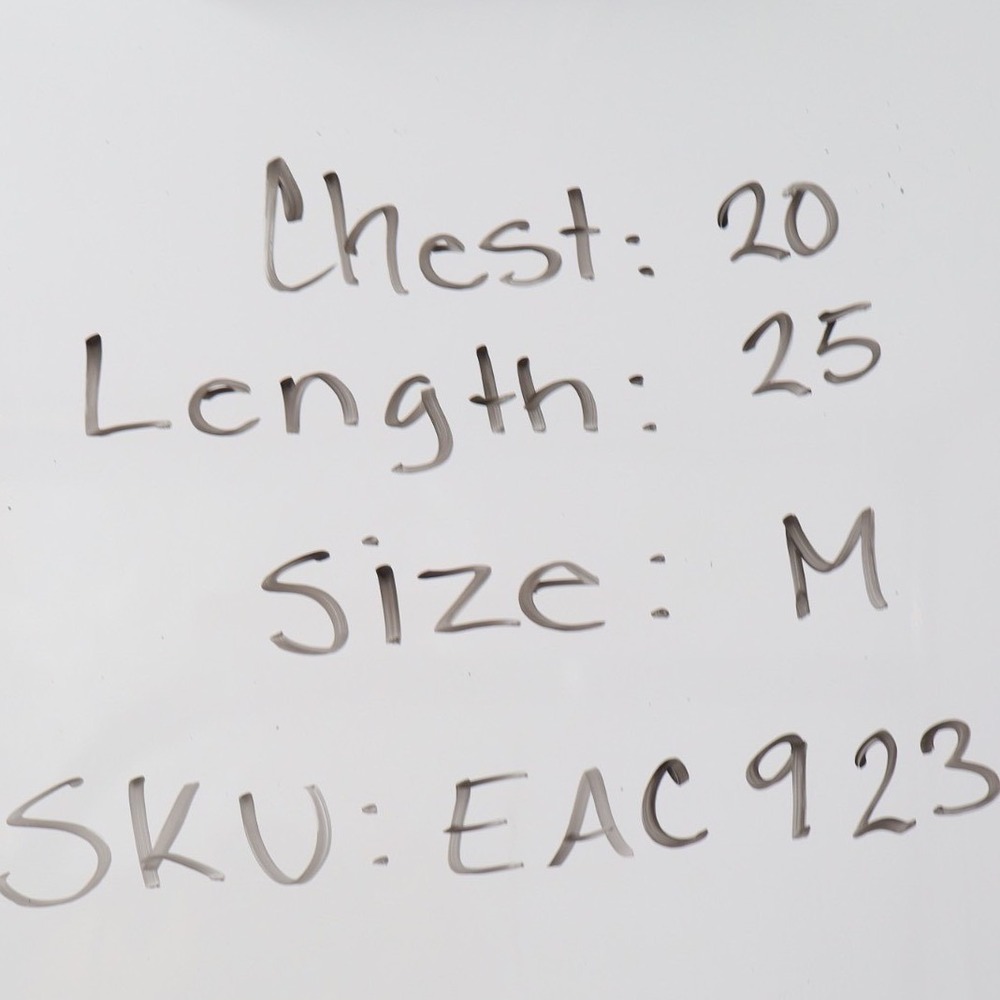 Chest: 20
Length: 25
Size: M
SKU: EAC 923